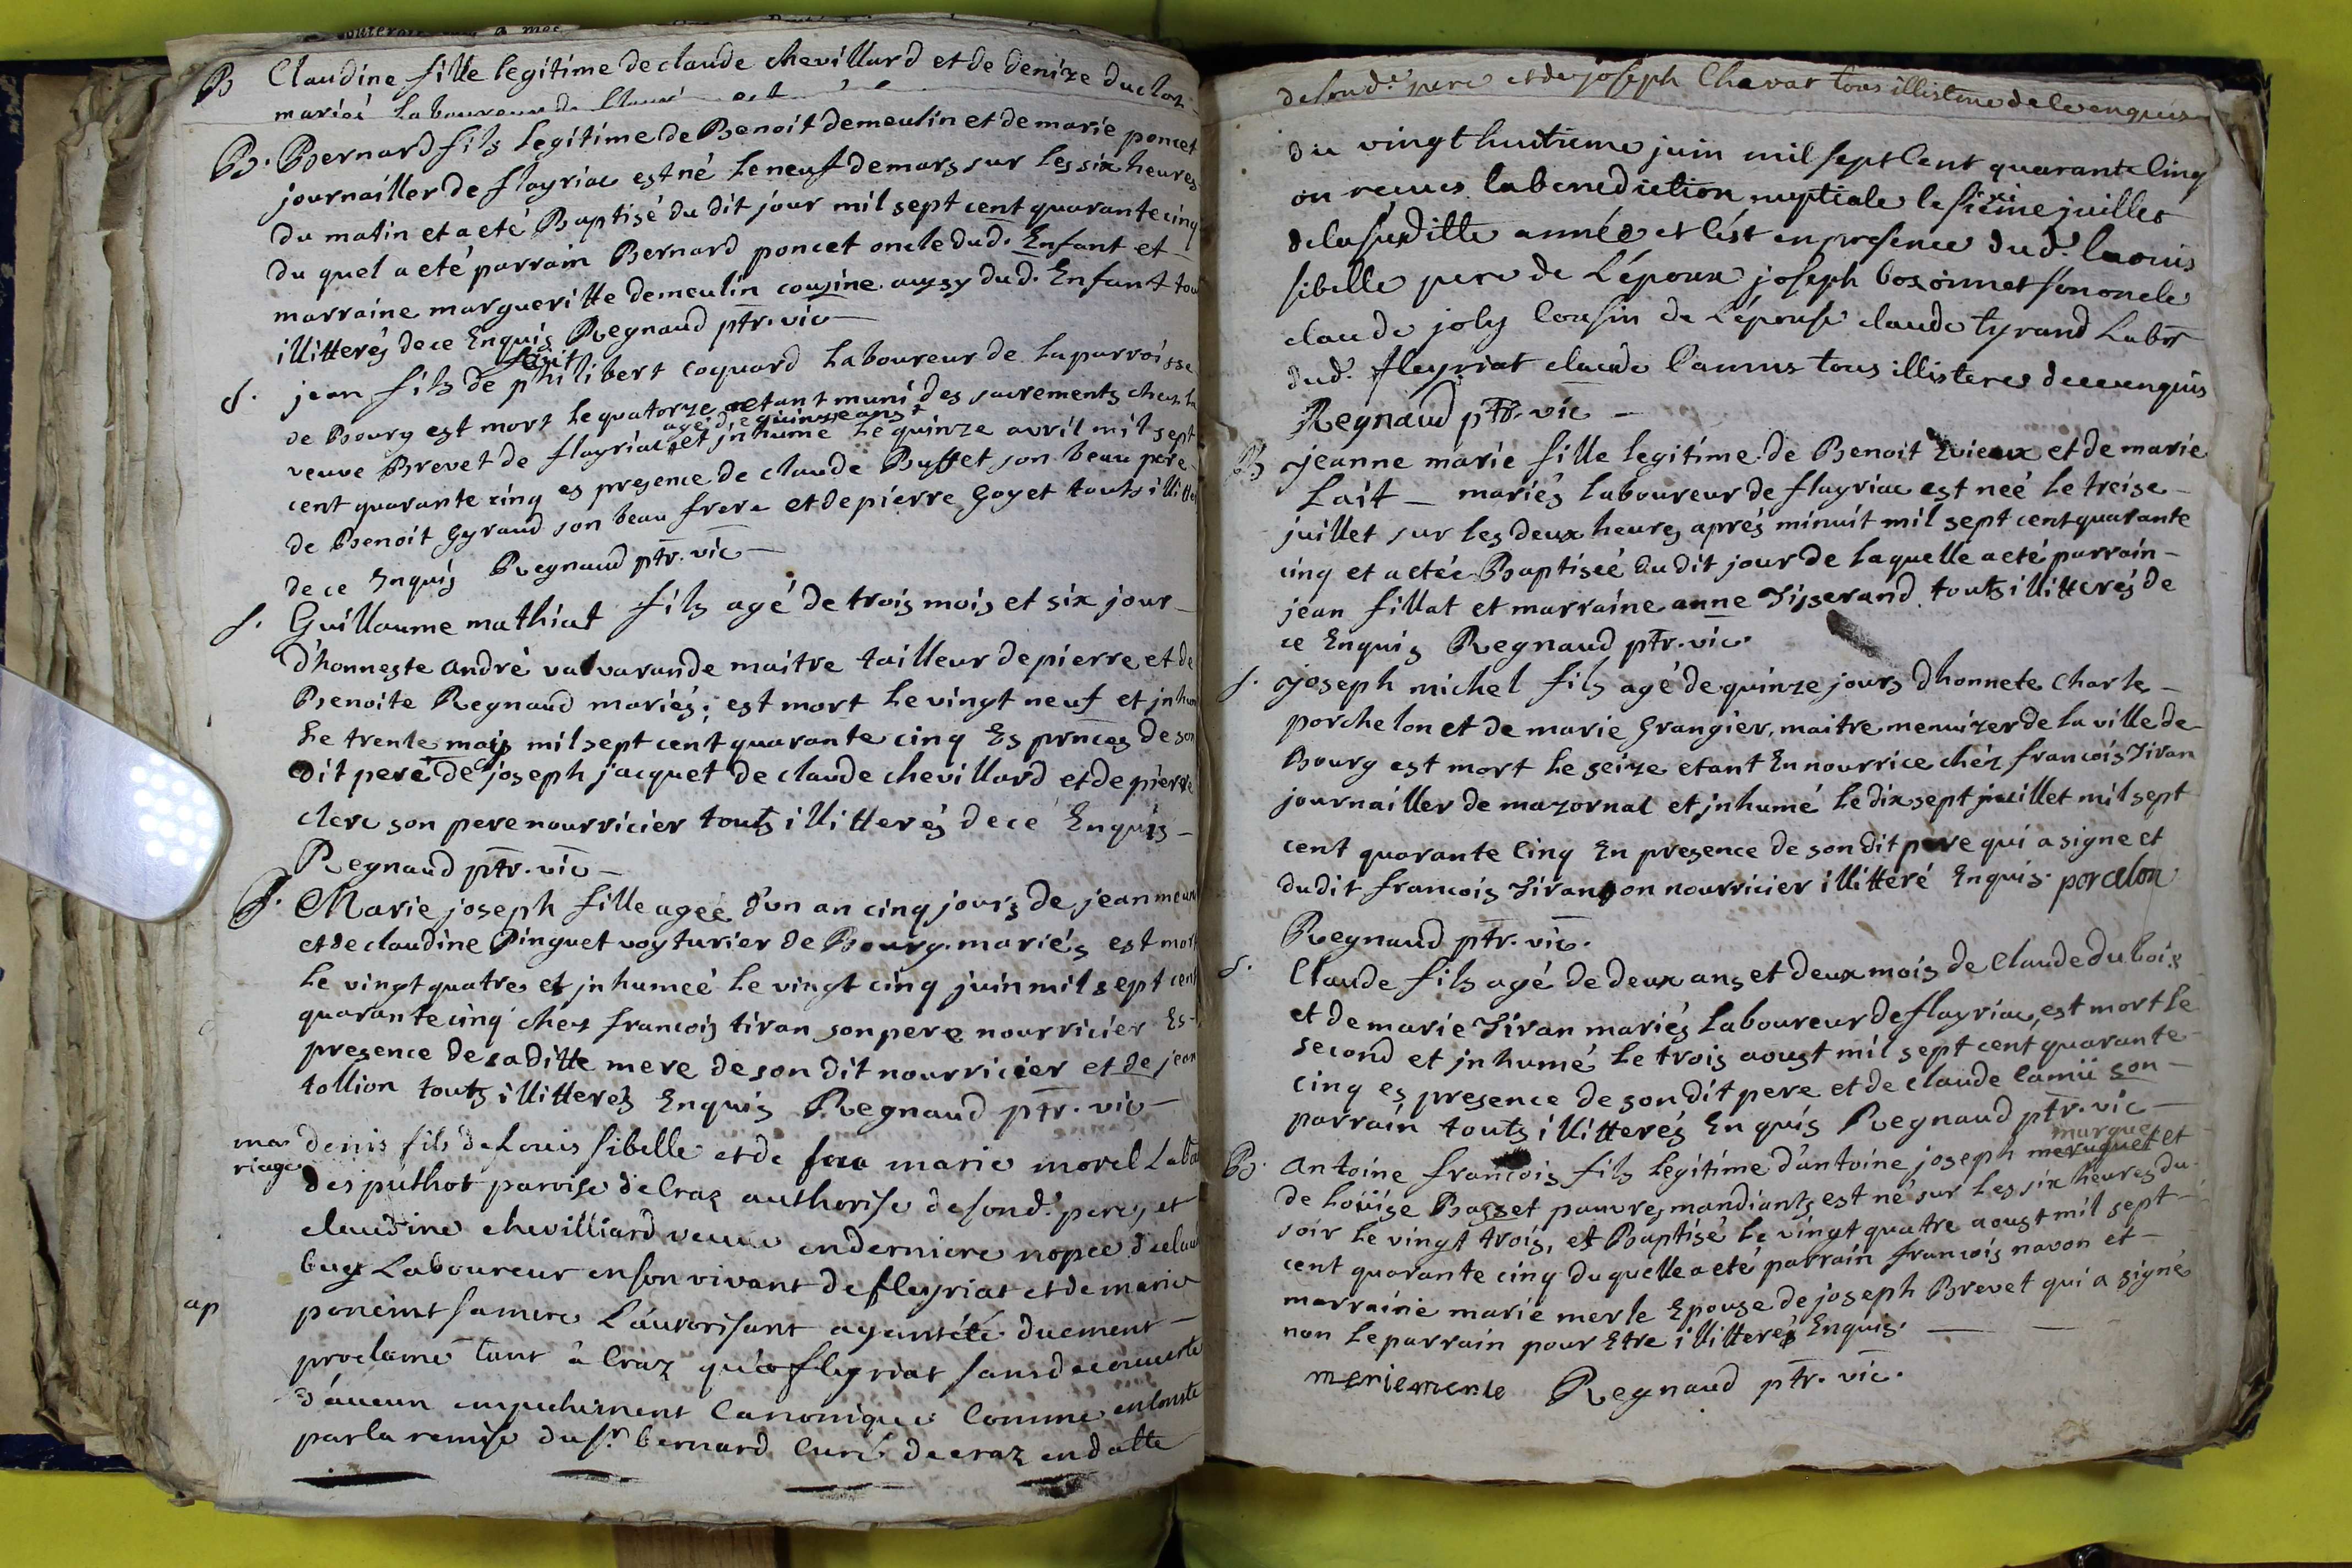 B Claudine fille legitime de claude chevillard et de denize duclos
mariés Laboureur de
B. Bernard fils legitime de Benoit demeulin et de marie poncet
journailler de flayriac est né le neuf de mars sur les six heures
du matin et a eté Baptisé du dit jour mil sept cent quarante cinq
du quel a eté parrain Bernard poncet oncle dud. Enfant et
marraine margueritte demeulin cousine aussy dud. Enfant tout
illitterés de ce Enquis Regnaud ptr. vic
S. jean fils de philibert coquard Laboureur de la parroisse
de Bourg est mort le quatorze etant muni des sacrements chez la
agé de quinze ans
veuve Brevet de flayriac et jnhumé le quinze avril mil sept
cent quarante cinq es presence de claude Buffet son beau pere
de Benoit Gyraud son beau frere et de pierre Goyet touts illitte
de ce Enquis Regnaud ptr. vic
S. Guillaume mathiat fils agé de trois mois et six jour
d'honneste andré valvarande maitre tailleur de pierre et de
Benoite Regnaud mariés; est mort le vingt neuf et jnhu
le trente mais mil sept cent quarante cinq Es prnces de son
dit pere de joseph jacquet de claude chevillard et de pierre
clerc son pere nourricier touts illitterés de ce Enquis
Regnaud ptr. vic
S. Marie joseph fille ageé d'un an cinq jours de jean
et de claudine Pinguet voyturier de Bourg mariés est mor
le vingt quatre et jnhumeé le vingt cinq juin mil sept cent
quarante cinq chez francois tiran son pere nourricier Es
presence de sa ditte mere de son dit nourricier et de jean
tollion touts illitterés Enquis Regnaud ptr. vic
ma denis fils de Louis sibelle et de feue marie morel Labo
riage des puthot paroise de Craz authorise de sond. pere, et
claudine chevilliard veuve en derniere nopce de clau
buy Laboureur en son vivant de fleyriat et de marie
poncint sa mere L'autorisant ayant été duement
ap
proclamé tant à Craz qu'a fleyriat sans decouverte
d'aucun empechement Canonique Comme conste
par la remise du sr. bernard Curé de craz en datte
de sond. pere et de joseph Chavat tous illisteres de ce enquis
du vingt huitieme juin mil sept Cent quarante Cinq
on recues la benediction nuptiale le sixieme juillet
de la susditte année et c'est en presence dud. Laouis
sibelle pere de L'époux joseph bozonnet son oncle
claude joly Cousin de L'épouse claude tyrand Labr
dud. fleyriat claude Camus tous illisteres de ce enquis
Regnaud ptr. vic
B jeanne marie fille legitime de Benoit vieux et de marie
Lait mariés laboureur de flayriac est neé le treise
juillet sur les deux heures aprés minuit mil sept cent quarante
cinq et a etée Baptiseé du dit jour de laquelle a eté parrain
jean fillat et marraine anne Tisserand touts illitterés de
ce Enquis Regnaud ptr. vic.
S. joseph michel fils agé de quinze jours d'honnete charle
porchelon et de marie Grangier, maitre menuizer de la ville de
Bourg est mort le seize etant En nourrice chéz francois Tiran
journailler de mazornat et jnhumé le dix sept juillet mil sept
cent quarante Cinq En presence de son dit pere qui a signe et
du dit francois Tiran son nourricier illitteré Enquis. porcelon
Regnaud ptr. vic.
S. Claude fils agé de deux ans et deux mois de Claude du bois
et de marie Tiran mariés Laboureur de flayriac, est mort le
second et jnhumé le trois aoust mil sept cent quarante
cinq es presence de son dit pere et de claude Camü son
parrain touts illitterés Enquis Regnaud ptr. vic
margue
B. Antoine francois fils legitime d'antoine joseph meruguet et
de Loüise Basset pauvres mandiants est né sur les six heures du
soir le vingt trois, et Baptisé le vingt quatre aoust mil sept
cent quarante cinq du quelle a eté parrain francois navon et
marraine marie merle Epouse de joseph Brevet qui a signé
non le parrain pour Etre illitteré Enquis.
meriemerle Regnaud ptr. vic.